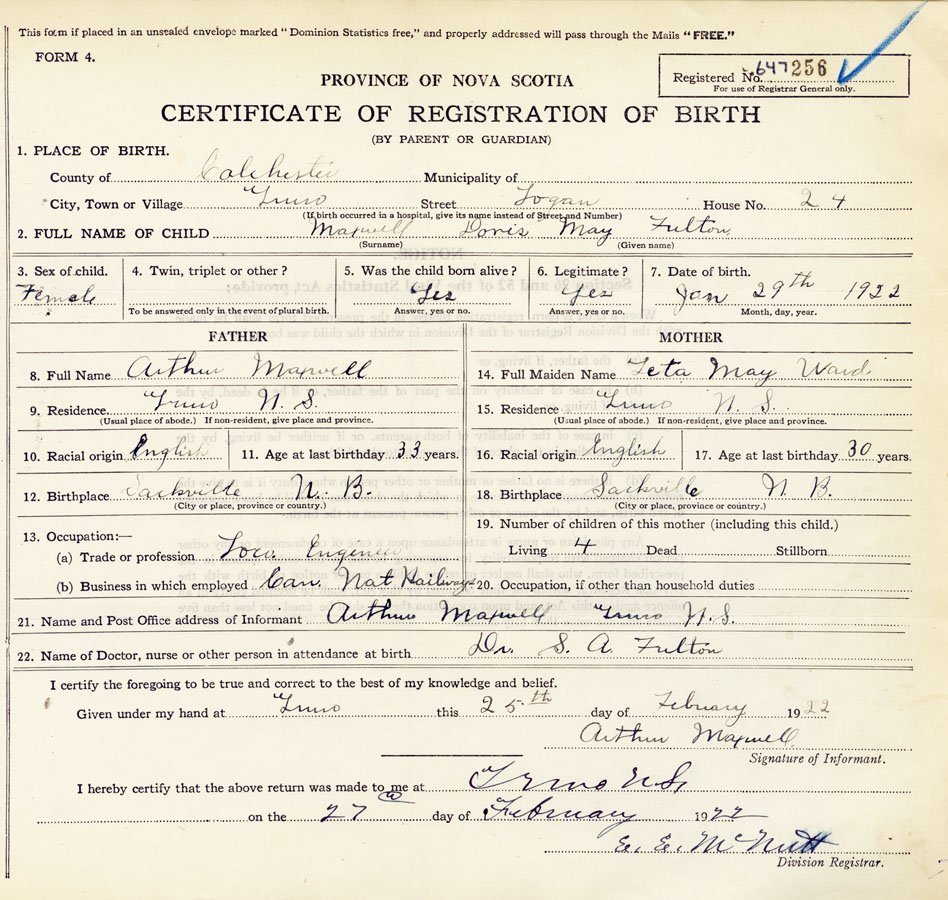 This form if placed in an unsealed envelope marked "Dominion Statistics free," and properly addressed will pass through the Mails "FREE."
FORM 4.
Registered No. 647256
For use of Registrar General only.
PROVINCE OF NOVA SCOTIA
CERTIFICATE OF REGISTRATION OF BIRTH
(BY PARENT OR GUARDIAN)
1. PLACE OF BIRTH.
County of Colchester Municipality of
City, Town or Village Truro Street Logan House No. 24
(If birth occurred in a hospital, give its name instead of Street and Number)
2. FULL NAME OF CHILD Maxwell Doris May Fulton
(Surname) (Given name)
3. Sex of child. 4. Twin, triplet or other? 5. Was the child born alive? 6. Legitimate? 7. Date of birth.
Female Yes Yes Jan 29th 1922
To be answered only in the event of plural birth. Answer, yes or no. Answer, yes or no. Month, day, year.
FATHER MOTHER
8. Full Name Arthur Maxwell 14. Full Maiden Name Leta May Ward
9. Residence Truro N. S. 15. Residence Truro N. S.
(Usual place of abode.) If non-resident, give place and province. (Usual place of abode.) If non-resident, give place and province.
10. Racial origin English 11. Age at last birthday 33 years. 16. Racial origin English 17. Age at last birthday 30 years.
12. Birthplace Sackville N. B. 18. Birthplace Sackville N B.
(City or place, province or country.) (City or place, province or country.)
13. Occupation:— 19. Number of children of this mother (including this child.)
(a) Trade or profession Loco. Engineer Living 4 Dead Stillborn
(b) Business in which employed Can. Nat Railways 20. Occupation, if other than household duties
21. Name and Post Office address of Informant Arthur Maxwell Truro N. S.
22. Name of Doctor, nurse or other person in attendance at birth Dr. S. A. Fulton
I certify the foregoing to be true and correct to the best of my knowledge and belief.
Given under my hand at Truro this 25th day of February 1922
Arthur Maxwell
Signature of Informant.
I hereby certify that the above return was made to me at Truro N S.
on the 27 day of February 1922
E. E. McNutt
Division Registrar.